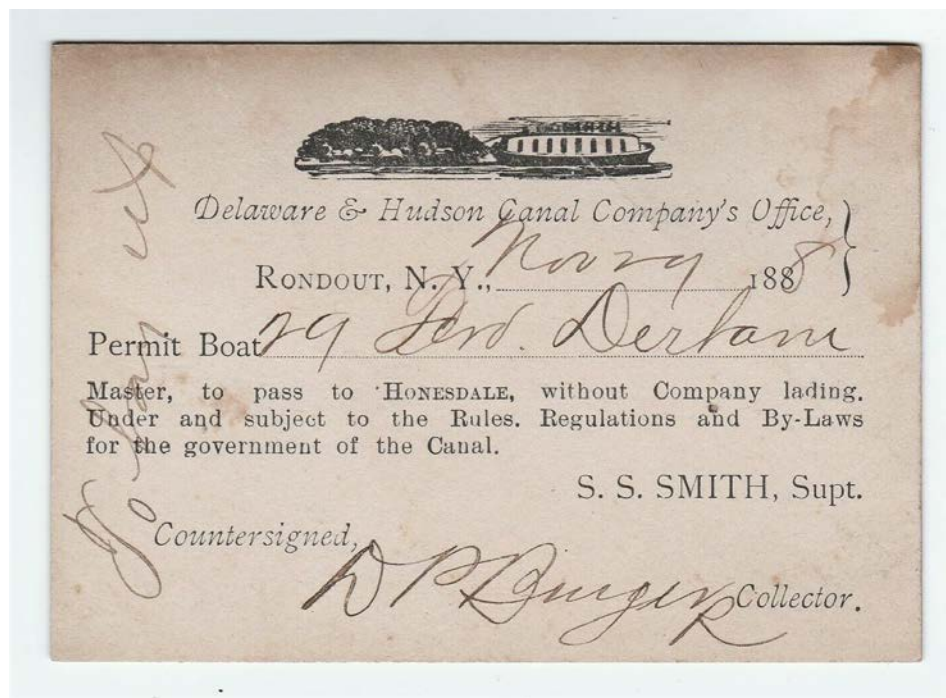 Delaware & Hudson Canal Company's Office,
RONDOUT, N. Y., Nov 29 1888
Permit Boat 29 Ferd.
Master, to pass to HONESDALE, without Company lading.
Under and subject to the Rules. Regulations and By-Laws
for the government of the Canal.
S. S. SMITH, Supt.
Countersigned,
D P Burger Collector.
To